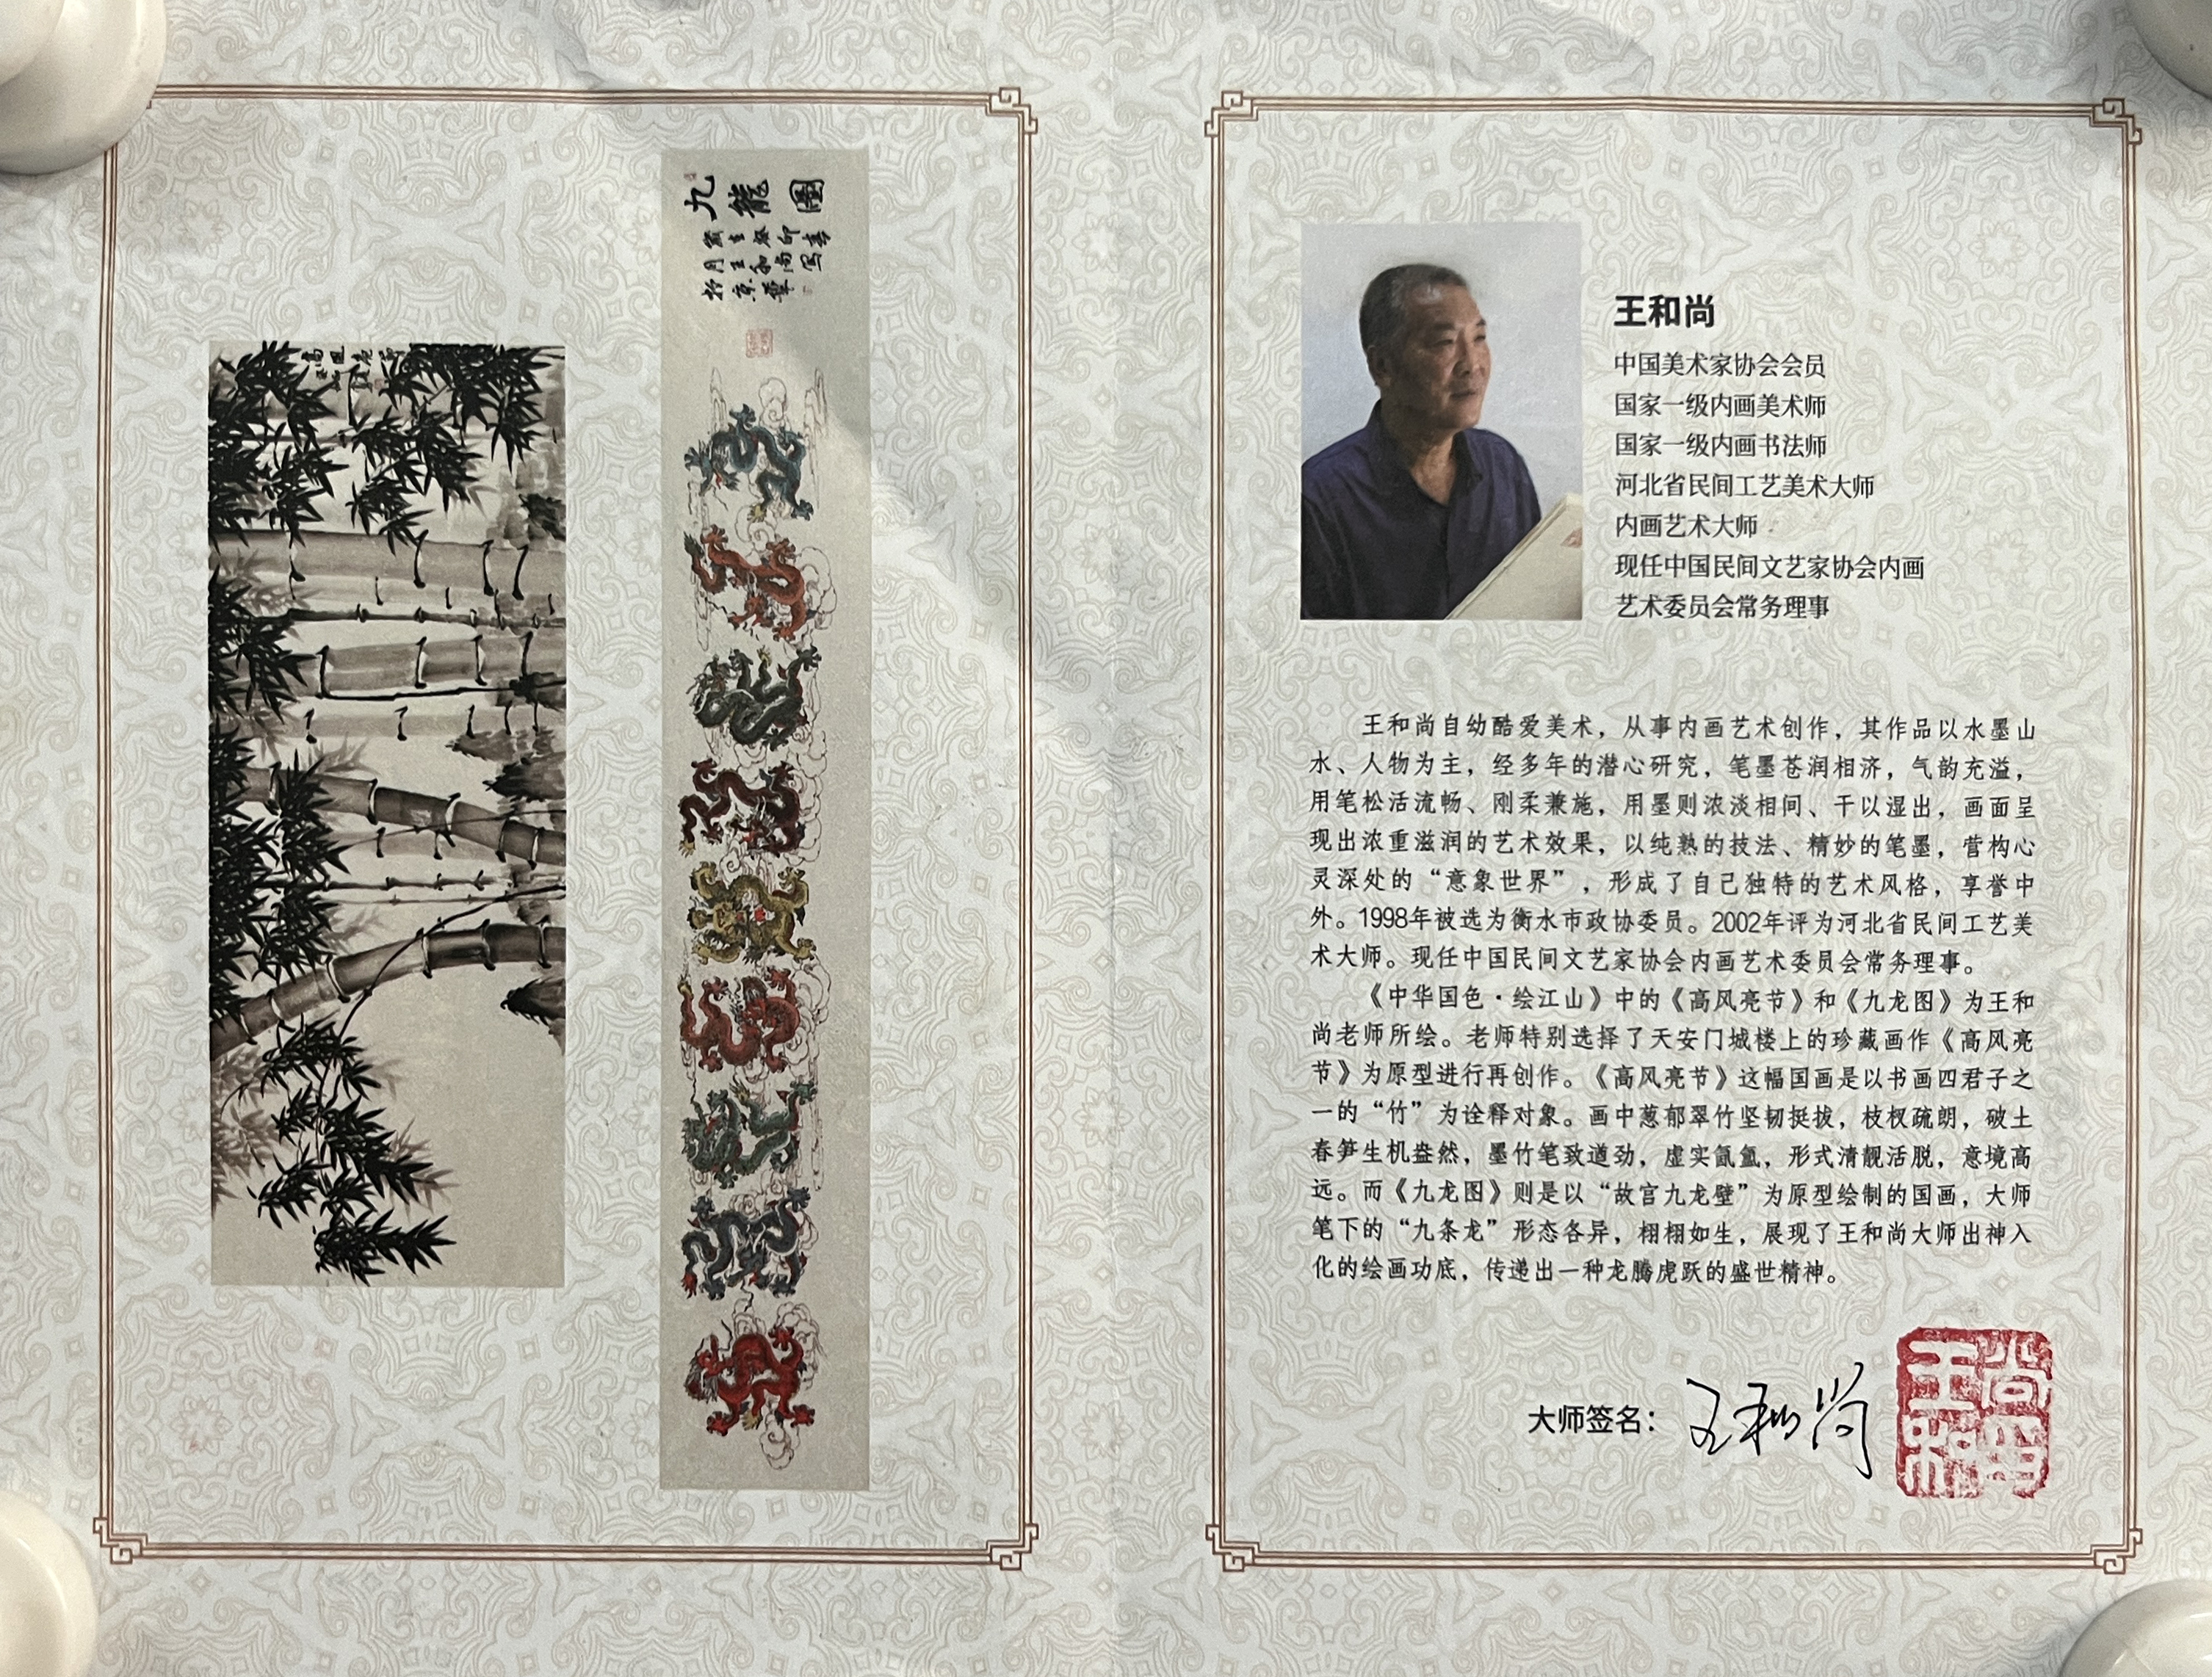 九龍圖
王和尚
中国美术家协会会员
国家一级内画美术师
国家一级内画书法师
河北省民间工艺美术大师
内画艺术大师
现任中国民间文艺家协会内画
艺术委员会常务理事
王和尚自幼酷爱美术，从事内画艺术创作，其作品以水墨山
水、人物为主，经多年的潜心研究，笔墨苍润相济，气韵充溢，
用笔松活流畅、刚柔兼施，用墨则浓淡相间、干以湿出，画面呈
现出浓重滋润的艺术效果，以纯熟的技法、精妙的笔墨，营构心
灵深处的“意象世界”，形成了自己独特的艺术风格，享誉中
外。1998年被选为衡水市政协委员。2002年评为河北省民间工艺美
术大师。现任中国民间文艺家协会内画艺术委员会常务理事。
《中华国色·绘江山》中的《高风亮节》和《九龙图》为王和
尚老师所绘。老师特别选择了天安门城楼上的珍藏画作《高风亮
节》为原型进行再创作。《高风亮节》这幅国画是以书画四君子之
一的“竹”为诠释对象。画中葱郁翠竹坚韧挺拔，枝杈疏朗，破土
春笋生机盎然，墨竹笔致遒劲，虚实氤氲，形式清靓活脱，意境高
远。而《九龙图》则是以“故宫九龙壁”为原型绘制的国画，大师
笔下的“九条龙”形态各异，栩栩如生，展现了王和尚大师出神入
化的绘画功底，传递出一种龙腾虎跃的盛世精神。
大师签名：王和尚